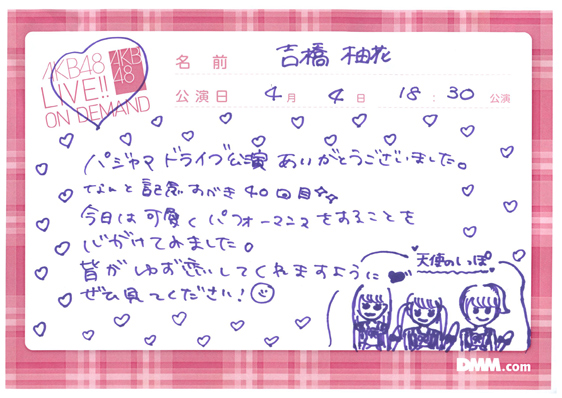 AKB48
LIVE!!
ON DEMAND
AKB
48
名前 吉橋 柚花
公演日 4月 4日 18:30 公演
パジャマドライブ公演 ありがとうございました。
なんと記念すべき40回目☆☆
今日は可愛くパフォーマンスをすることを
心がけてみました。
皆がゆず恋してくれますように♥
ぜひ見てください!
天使のしっぽ
DMM.com